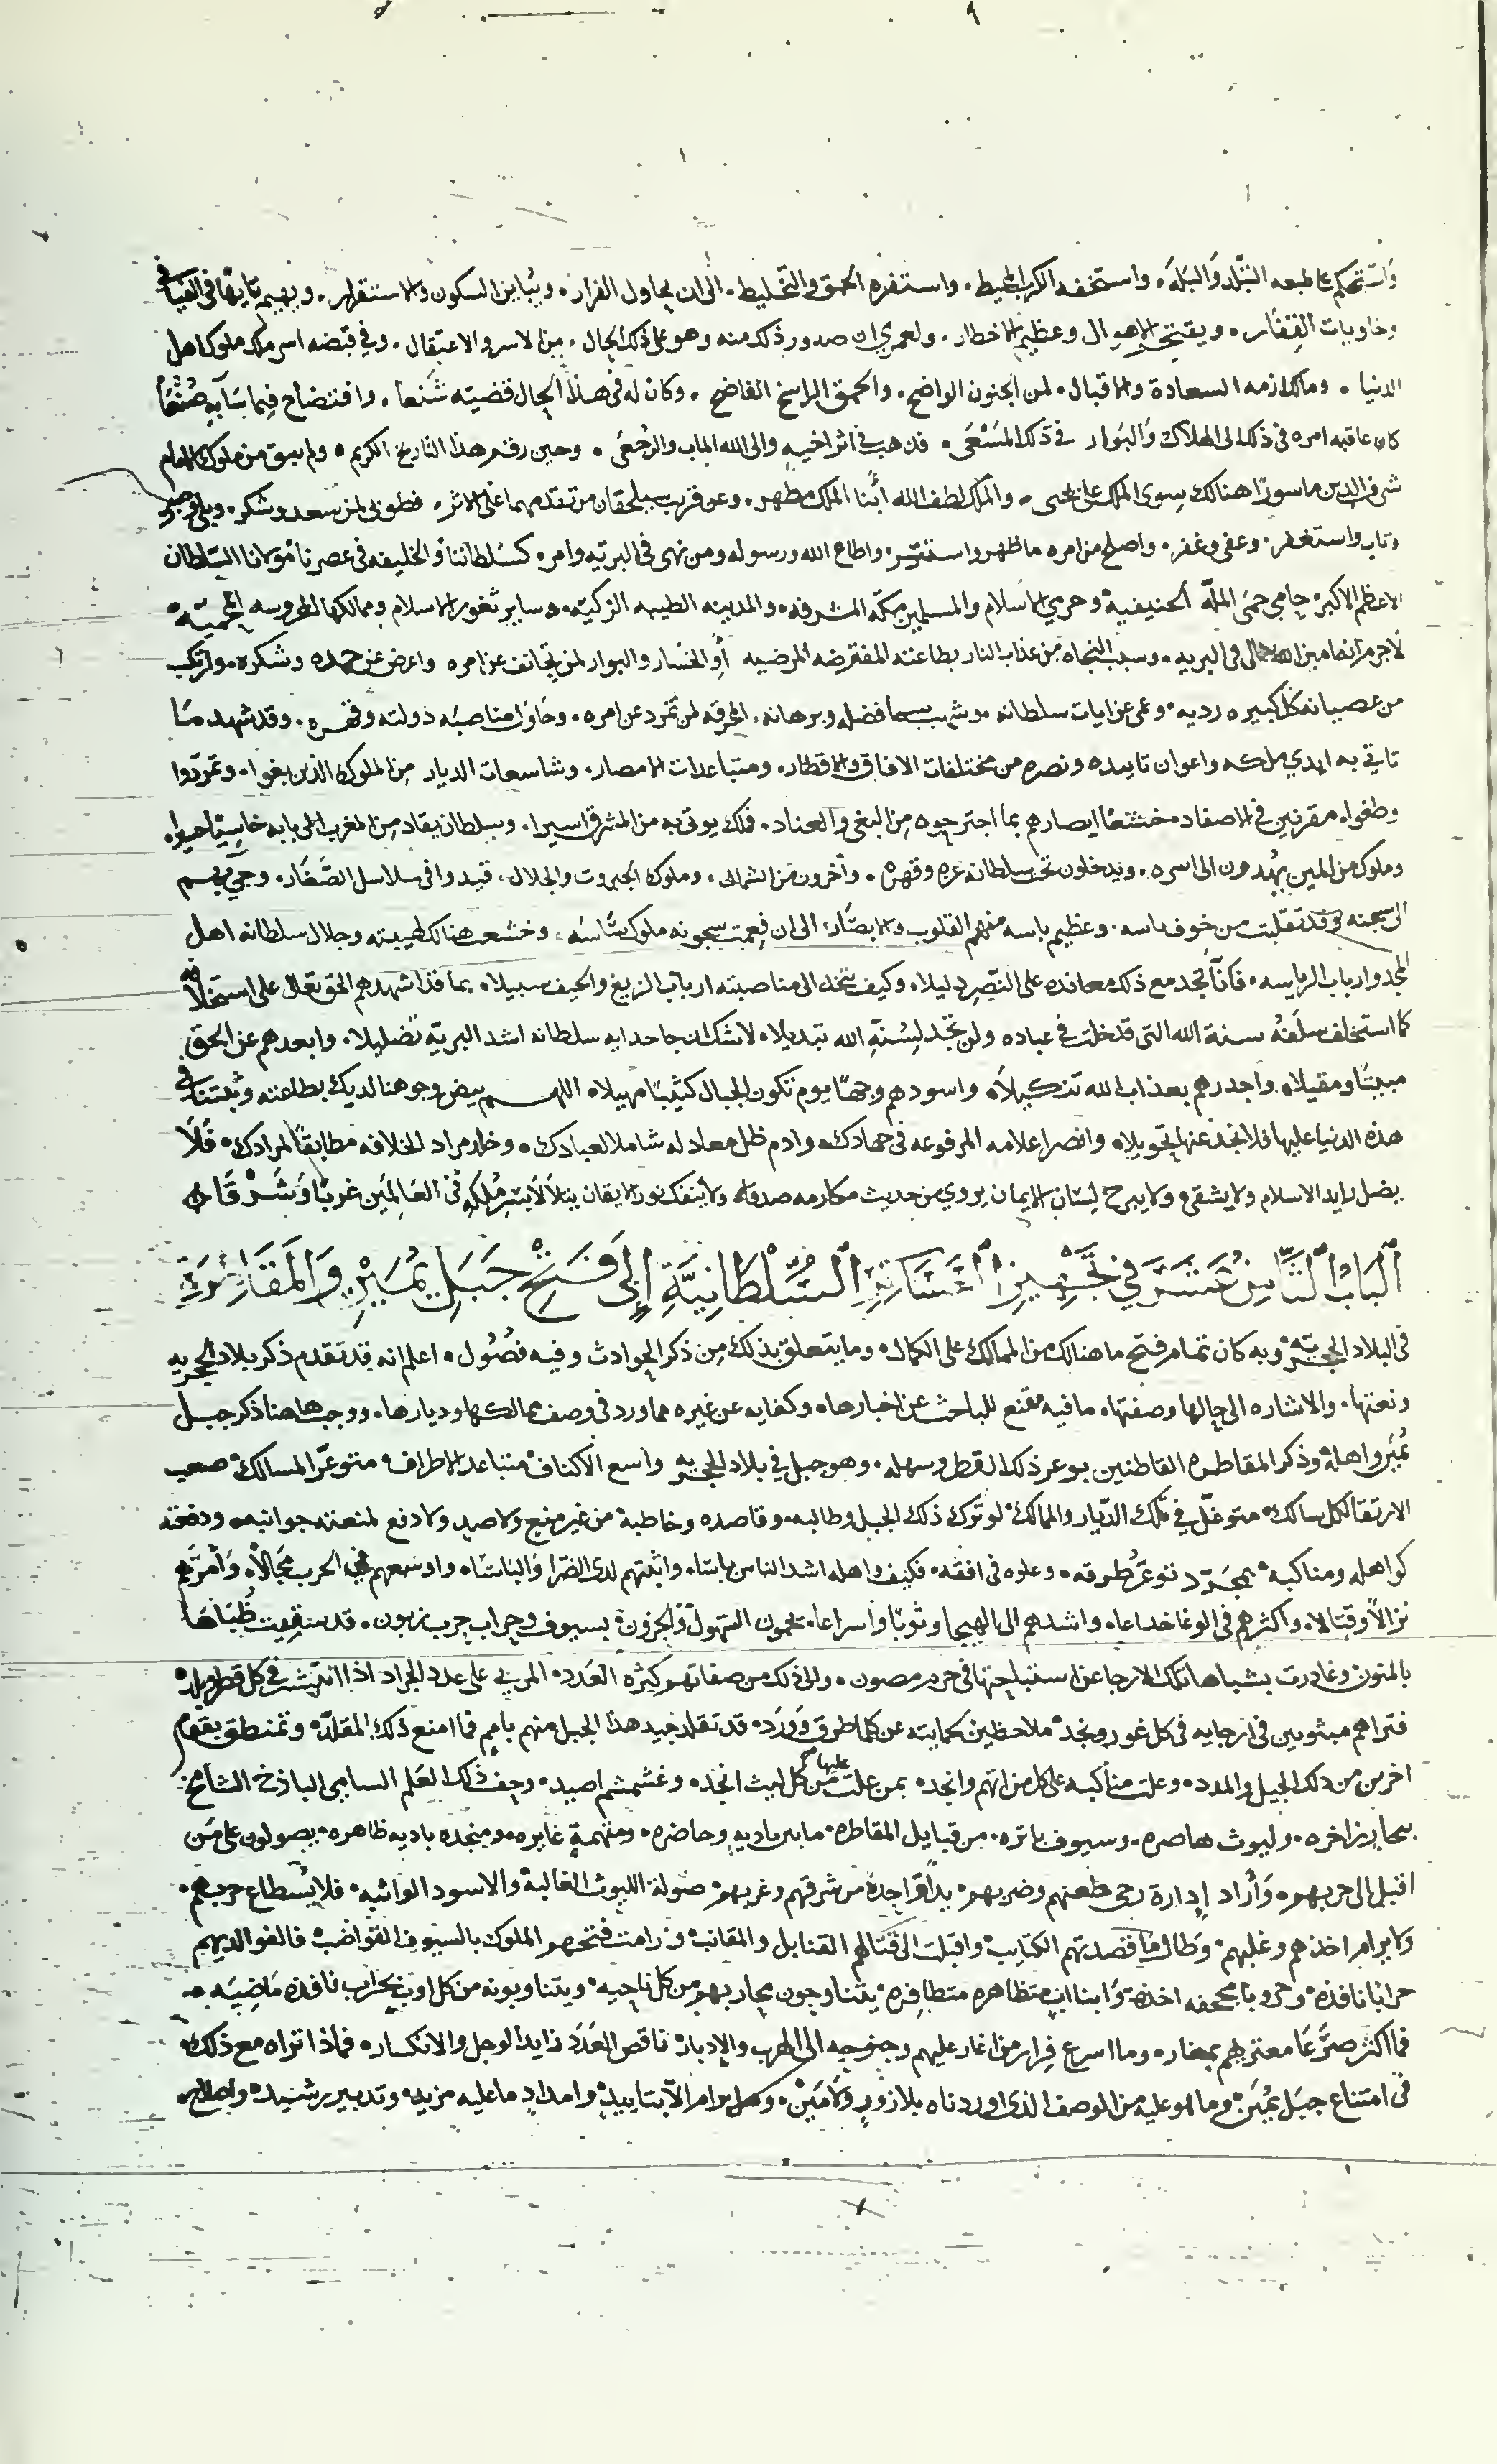 واستحكم على طبعه التبلد والبله. واستخفه الكرب المحيط. واستفزه الحمق والتخليط. الى ان يحاول الفرار. ويباين السكون والاستقرار. ويهيم تايها في الفيافي
وخاويات القفار. ويقتحم الاهوال وعظيم الاخطار. ولعمري ان صدور ذلك منه وهو على ذلك الحال. من الاسر والاعتقال. وفي قبضه اسر ملك ملوك اهل
الدنيا. ومالك ازمه السعادة والاقبال. لمن الجنون الواضح. والحمق الراسخ الفاضح. وكان له في هذا الحال قضيته شنعا. وافتضاح فيما سآبه صنعا
كان عاقبه امره في ذلك الى الهلاك والبوار في ذلك المسعى. فذهب في اثر اخيه والى الله الماب والرجعى. وحين رقم هذا التاريخ الكريم. ولم يبق من ملوك الامام
شرف الدين ماسورًا هنالك سوى الملك علي يحيى. والملك لطف الله أبنا الملك مطهر. وعن قريب سيلحقان من تقدمهما على الاثر. فطوبى لمن سعد وشكر.
وتاب واستغفر. وعفى وغفر. واصلح من امره ما ظهر واستتر. واطاع الله ورسوله ومن نهى في البريه وامر. كسلطاننا والخليفه في عصرنا مولانا السلطان
الاعظم الاكبر حامي حمى الملّة الحنيفية وحرمي الاسلام والمسلمين مكّه المشرفه. والمدينه الطيبه الزكيّه. وساير ثغور الاسلام وممالكها المحروسه المحميّه
لاجرم انه امين الله في البريه. وسبب النجاه من عذاب النار بطاعته المفترضه المرضيه أو الخسار والبوار لمن تجانف عن امره واعرض عن حمده وشكره. وارتكب
من عصيانه كل كبيره رديه. وعمى عن ايات سلطانه وشهب سما فضله وبرهانه. المحرقه لمن تمرد عن امره. وحاول مناصبه دولته وقهره. وقد شهد ما
تاتي به ايدي ملكه واعوان تاييده ونصره من مختلفات الافاق والاقطار. ومتباعدات الامصار. وشاسعات الديار من الملوك الذين بغوا. وتمردّوا
وطغوا. مقرنين في الاصفاد. خشعًا ابصارهم بما اجترحوه من البغي والعناد. فملك يوتى به من المشرق اسيرا. وسلطان يقاد من المغرب الى بابه خاسئا حسيرا.
وملوك من اليمن يهدون الى اسره. ويدخلون تحت سلطانه عزه وقهره. وآخرون من الشمال. وملوك الجبروت والجلال. قيدوا في سلاسل الصغار. وجيّ بهم
الى سجنه وقد تقلبت من خوف باسه. وعظيم باسه منهم القلوب والابصار. الى ان فعمت سجونه ملوك سَاسَه. وخشعت هنالك لهيبته وجلال سلطانه اهل
المجد وارباب الرياسه. فكانّما تجد مع ذلك معانده على النصر دليلا. وكيف يتخذ الى مناصبته ارباب الزيغ والحيف سبيلا. بما قد اشهدهم الحق تعالى على استخلافه
كما استخلف سلفه سنة الله التي قد خلت في عباده ولن تجد لسُنّةِ الله تبديلا. لاشك ان جاحد ايه سلطانه اشد البريّه تضليلا. وابعدهم عن الحق
مبيتًا ومقيلا. واجدرهم بعذاب الله تنكيلًا. واسودهم وجهًا يوم تكون الجبال كثيبًا مهيلا. اللهم بيض وجوهنا لديك بطاعته وثبّتنا في
هذه الدنيا عليها فلا نجد عنها تحويلا. وانصر اعلامه المرفوعه في جهادك. وادم ظل معادله شاملا لعبادك. وخلد مراد الخلافه مطابقًا لمرادك. فلا
يضل رايد الاسلام ولا يشقى. ولا يبرح لسان الايمان يروي من حديث مكارمه صدقا. ولا ينفك نور الايقان يتلألأ بسر ملكه في العالمين غربًا وشرقا
الباب الثامن عشر في تجهيز العساكر السلطانية إلى فتح جبل يُمَيْن والمقاطرة
في البلاد الحجريّه وبه كان تمام فتح ما هنالك من الممالك على الكمال. وما يتعلق بذلك من ذكر الحوادث وفيه فصُول. اعلم انه قد تقدم ذكر بلاد الحجريه
ونعتها. والاشاره الى حالها وصفتها. ما فيه مقنع للباحث عن اخبارها. وكفايه عن غيره مما ورد في وصف ممالكها وديارها. ووجب هاهنا ذكر جبل
يُمَين واهله وذكر المقاطره القاطنين بوعر ذلك القطر وسهله. وهو جبل في بلاد الحجريه واسع الاكناف متباعد الاطراف متوعّر المسالك صعب
الارتقا لكل سالك متوغّل في تلك الديار والممالك لو ترك ذلك الجبل وطالبه. وقاصده وخاطبه من غير منع ولا صد ولا دفع لمنعته جوانبه. ودفعته
كواهله ومناكبه بمجرّد توعّر طرقه. وعلوه في افقه. فكيف واهله اشد الناس باسًا. واثبتهم لدى الضرّا والباسَا. واوسعهم في الحرب مجالا. وأمرّهم
نزالاً وقتالا. واكثرهم في الوغا خداعا. واشدهم الى الهيجا وثوبًا واسراعا. يحمون السّهول والحزون بسيوف وحراب حرب زبون. قد سقيت ظُبَاهَا
بالمنون وغادرت بشباها تلك الارجا عن استباحتها في حرم مصون. والى ذلك من صفاتهم كثره العدد. المربي على عدد الجراد اذا انتشر في كل قطر وبلد
فتراهم مبثوثين في ارجايه في كل غور ونجد ملاحظين حمايته عن كلما طرق وورد. قد تقلد جيد هذا الجبل منهم بامم فما امنع ذلك المقلّد. وتمنطق بقوم
اخرين من ذلك الجيل والمدد. وعلت مناكبه على كل من اتهم وانجد. بمن علت عليها من كل ليث انجد. وغشمشم اصيد. وحف ذلك العلم السامي الباذخ الشامخ
بحار زاخره. وليوث هاصره. وسيوف باتره. من قبايل المقاطره ما بين باديه وحاضره. ومتهمة غايره. ومنجده باديه ظاهره. يصولون على من
اقبل الى حربهم. وأراد إدارة رحى طعنهم وضربهم يدًا واحِدةً من شرقهم وغربهم صولة الليوث الغالبة والاسود الواثبه. فلا يُسطاع حربهم.
ولا يرام اخذهم وغلبهم وطال ما قصدتهم الكتايب واقبلت الى قتالهم القنابل والمقانب ورامت فتحهم الملوك بالسيوف القواضب فالفوا لديهم
حرابًا نافذة وحروبًا مجحفه اخذة وابنا اب متظاهره متظافِره يتناوحون محاربهم من كل ناحيه ويتناوبونه من كل اوب بحراب نافذه ماضيَه.
فما اكثر صرّعًا معتزلهم بمغاره. وما اسرع فِرار من اغار عليهم وجنوحه الى الهرب والإدبار ناقص العدد زايد الوجل والانكسار. فماذا تراه مع ذلك
في امتناع جبل يُمَين وما هو عليه من الوصف الذي اوردناه بلا زور ولا مَيْن. وهل يرام الّا بتاييد وامداد ما عليه مزيد. وتدبير رشيد واصلاح